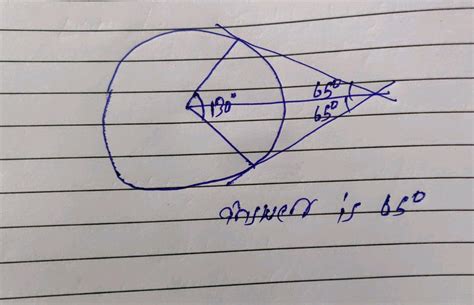 65°
130°
65°
is 65°